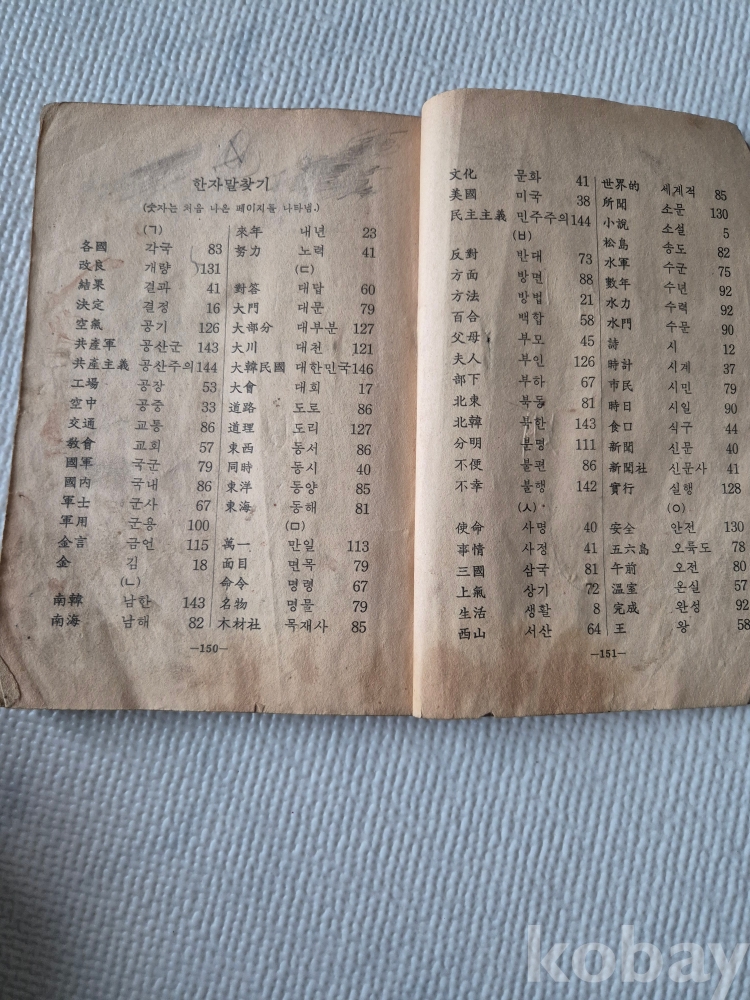 한자말찾기
(숫자는 처음 나온 페이지를 나타냄.)
(ㄱ)
各國 각국 83
改良 개량 131
結果 결과 41
決定 결정 16
空氣 공기 126
共産軍 공산군 143
共産主義 공산주의 144
工場 공장 53
空中 공중 33
交通 교통 86
敎會 교회 57
國軍 국군 79
國内 국내 86
軍士 군사 67
軍用 군용 100
金言 금언 115
金 김 18
(ㄴ)
南韓 남한 143
南海 남해 82
來年 내년 23
努力 노력 41
(ㄷ)
對答 대답 60
大門 대문 79
大部分 대부분 127
大川 대천 121
大韓民國 대한민국 146
大會 대회 17
道路 도로 86
道理 도리 127
東西 동서 86
同時 동시 40
東洋 동양 85
東海 동해 81
(ㅁ)
萬一 만일 113
面目 면목 79
命令 명령 67
名物 명물 79
木材社 목재사 85
—150—
文化 문화 41
美國 미국 38
民主主義 민주주의 144
(ㅂ)
反對 반대 73
方面 방면 88
方法 방법 21
百合 백합 58
父母 부모 45
夫人 부인 126
部下 부하 67
北東 북동 81
北韓 북한 143
分明 분명 111
不便 불편 86
不幸 불행 142
(ㅅ)
使命 사명 40
事情 사정 41
三國 삼국 81
上氣 상기 72
生活 생활 8
西山 서산 64
世界的 세계적 85
所聞 소문 130
小說 소설 5
松島 송도 82
水軍 수군 75
數年 수년 92
水力 수력 92
水門 수문 90
詩 시 12
時計 시계 37
市民 시민 79
時日 시일 90
食口 식구 44
新聞 신문 40
新聞社 신문사 41
實行 실행 128
(ㅇ)
安全 안전 130
五六島 오륙도 78
午前 오전 80
溫室 온실 57
完成 완성 92
王 왕 58
—151—
kobay